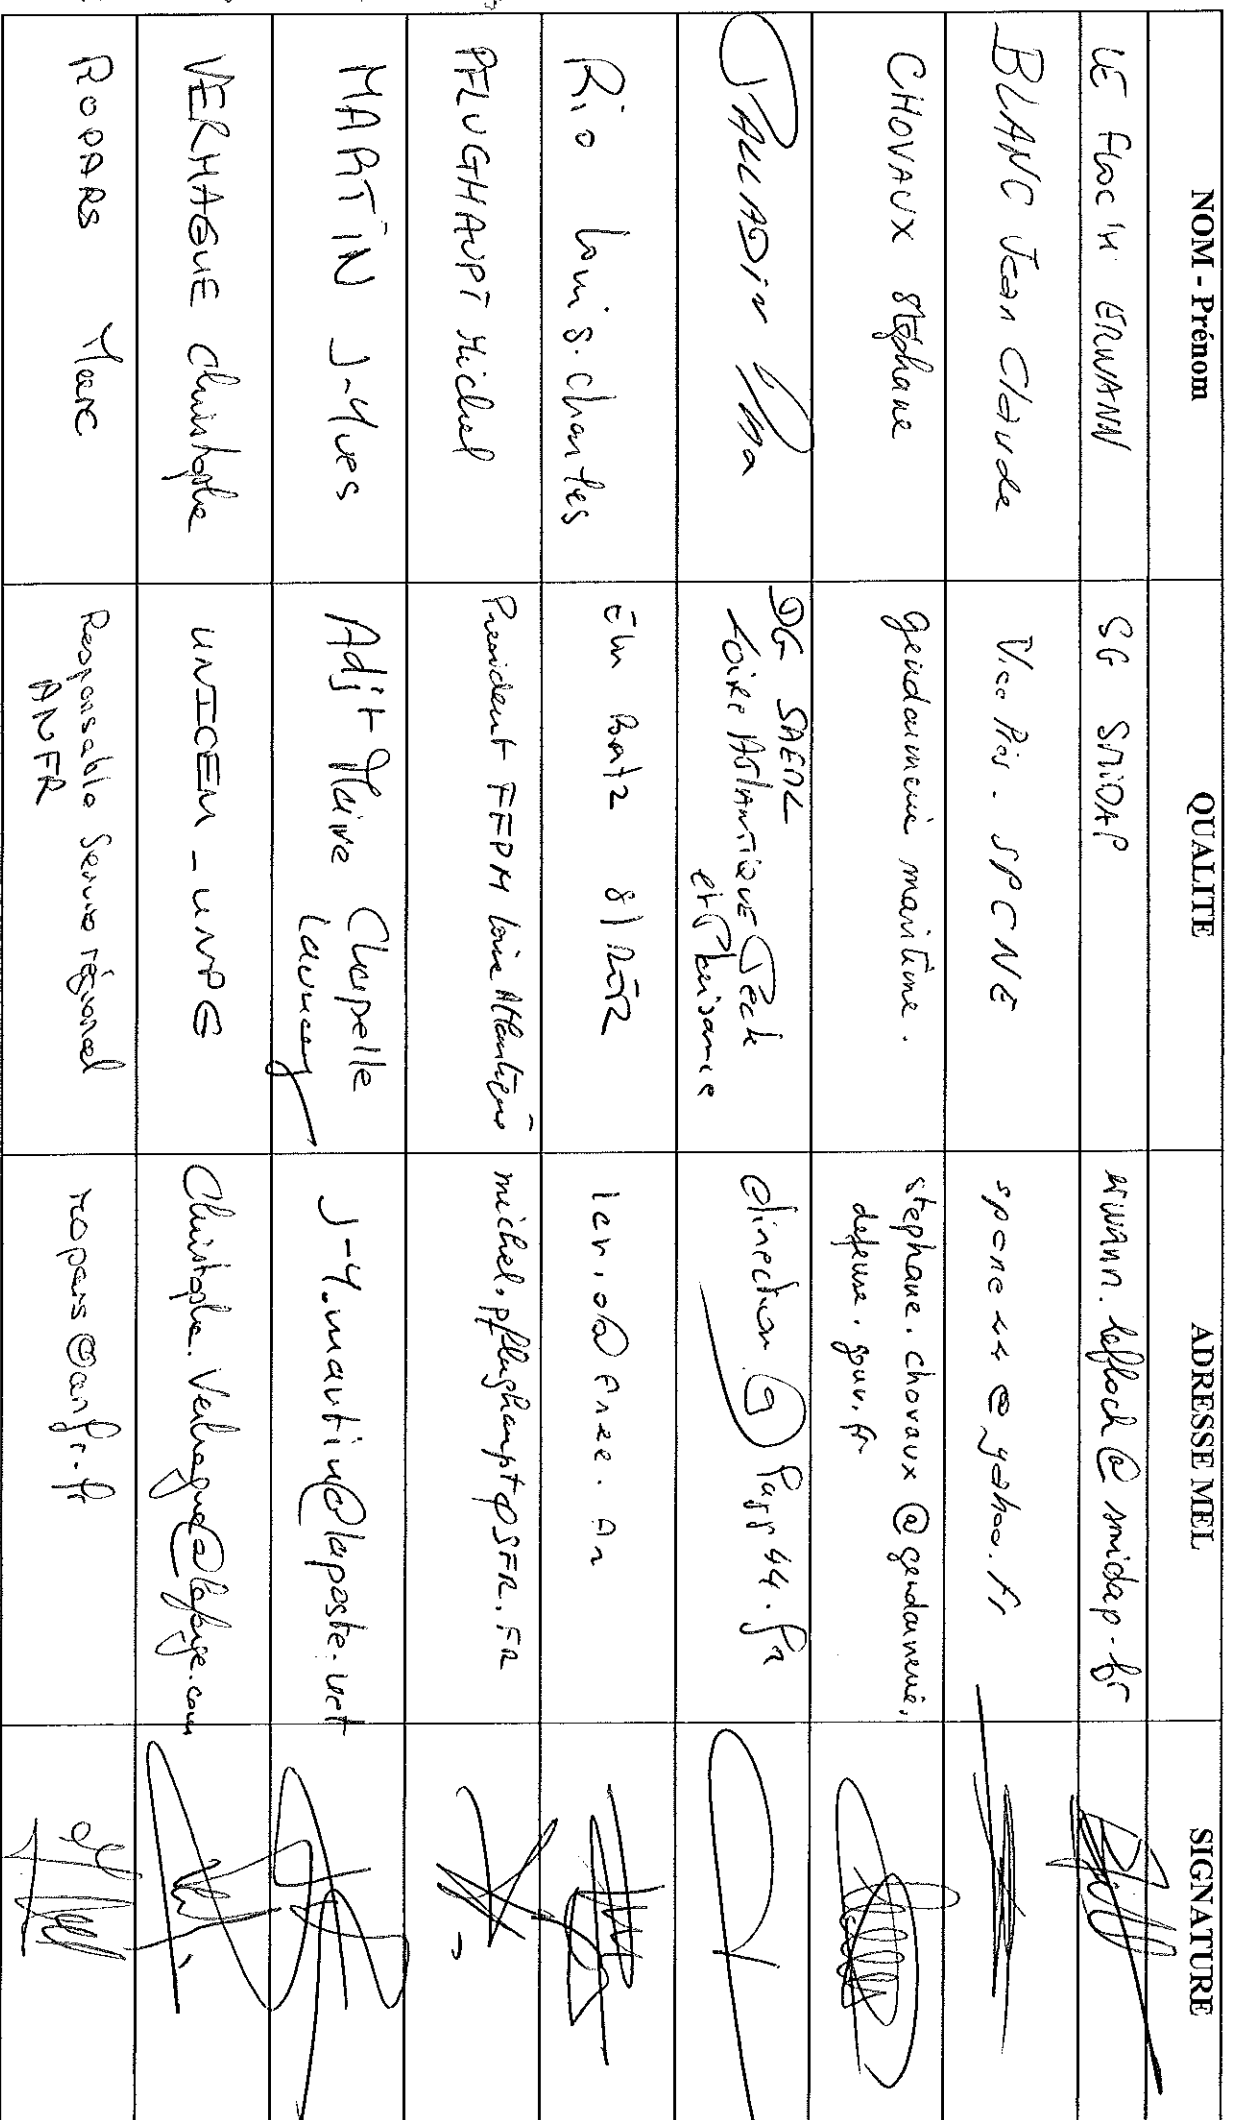 NOM - Prénom QUALITE ADRESSE MEL SIGNATURE
LE FLOC'H ERWANN SG SMIDAP erwann.lefloch@smidap.fr
BLANC Jean Claude Vice Prés. SPCNE spcne44@yahoo.fr
CHOVAUX Stéphane gendarmerie maritime. stephane.chovaux@gendarmerie.
defense.gouv.fr
DG SAEML
Loire Atlantique Pêche
et Plaisance
direction@lapp44.fr
Rio Louis-Charles lcrio@free.fr
PFLUGHAUPT Michel President FFPM Loire Atlantique michel.pflughaupt@SFR.FR
MARTIN J-Yves Adjt Maire Chapelle
Launay
j-y.martin@laposte.net
VERHAGUE Christophe UNICEM - UNPG Christophe.Verhague@lafarge.com
ROPARS Marc Responsable Service régional
ANFR
ropars@anfr.fr